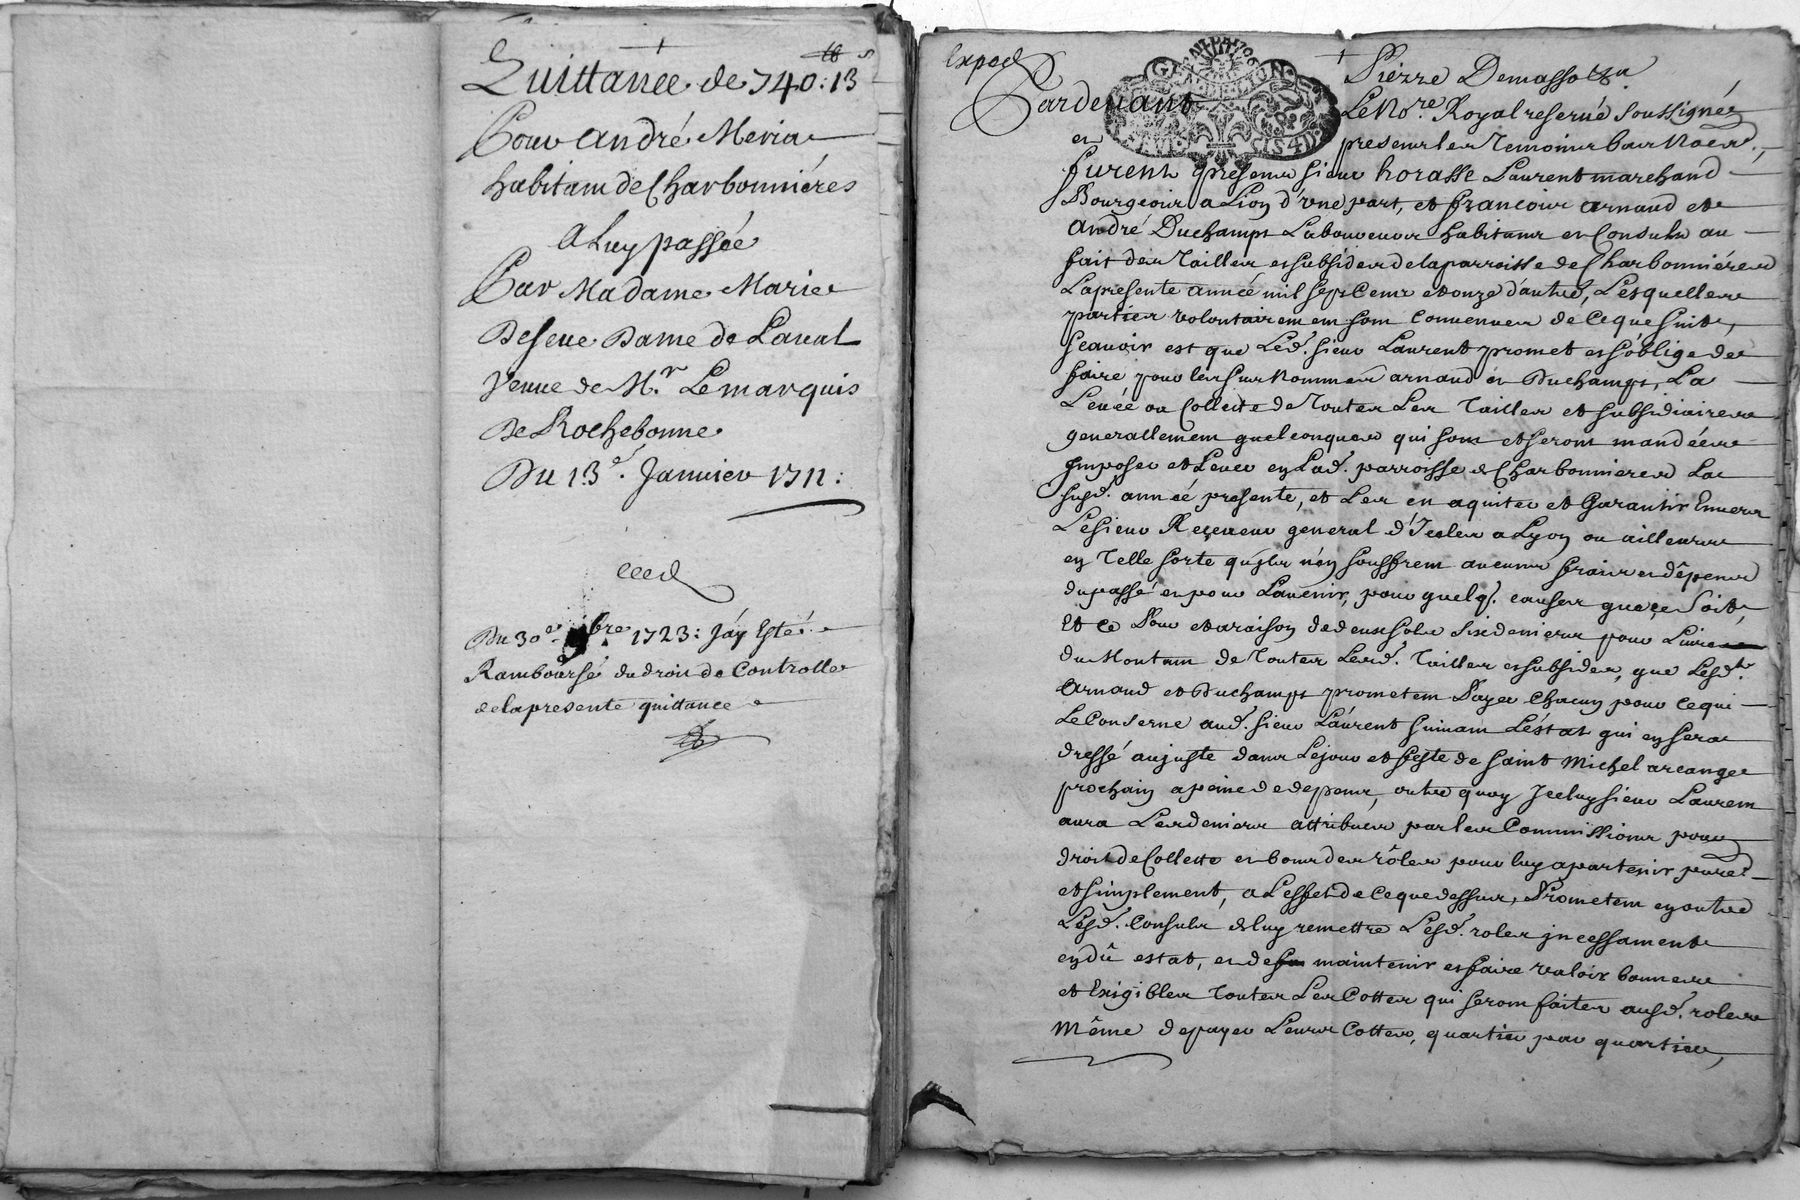 Quittance de 740: 13
Pour André Meria
habitant de Charbonniéres
A Luy passée
Par Madame Marie
De seve Dame de Laval
Veuve de Mr. Le marquis
De Rochebonne
Du 13e. Janvier 1711:
Du 30e 9bre 1723: J'ay Esté
Rambourse du droit de Controlle
de la presente quittance
Exped
Pierre Demasso
Pardevant Le No.re Royal reservé Soussigné
GEN LION
et presents les Temoins bas No.es,
furent presents sieur horasse Laurent marchand
Bourgeois a Lion d'une part, et francois arnaud et
André Duchamps Laboureurs habitans et Consuls au
fait des Tailles et subsides de la parroisse de Charbonniéres
La presente année mil sept Cent et onze d'autre, Lesquelles
parties volontairement sont Convenues de Ce que suit,
scavoir est que Led. sieur Laurent promet et s'oblige de
faire pour les sus Nommés arnaud et Duchamps, La
Levée ou Collecte de Toutes Les Tailles et subsidiaires
generallement quelconques qui sont et seront mandées
Imposer et Lever en Lad. parroisse de Charbonnieres La
susd. année presente, et Les en aquiter et Garantir Envers
Le sieur Receveur general d'Icelles a Lyon ou ailleurs
en Telle sorte qu'ils n'en souffrent aucuns frais et dêpens
du passé et pour L'avenir, pour quelq. causes que ce Soit,
Et ce Pour et a raison de deux sols Six deniers pour Livre
du Montant de Toutes Lesd. Tailles et subsides, que Lesd.
Arnaud et Duchamps prometent Payer Chacun pour Ce qui
Le Conserne aud. sieur Laurent suivant L'éstat qui en sera
dressé au juste dans Le jour et feste de saint Michel arcange
prochain a peine de depens, outre quoy Iceluy sieur Laurent
aura Les deniers attribués par les Commissions pour
droit de Collette et bour des rôles pour luy apartenir puret
et simplement, a L'effet de Ce que dessus, Prometent en outre
Lesd. Consuls de luy remettre Lesd. roles incessament
en dû estat, et de maintenir et faire valoir bonnes
et Exigibles Toutes Les Cottes qui seront faites ausd. roles
Même de payer Leurs Cottes, quartier par quartier,